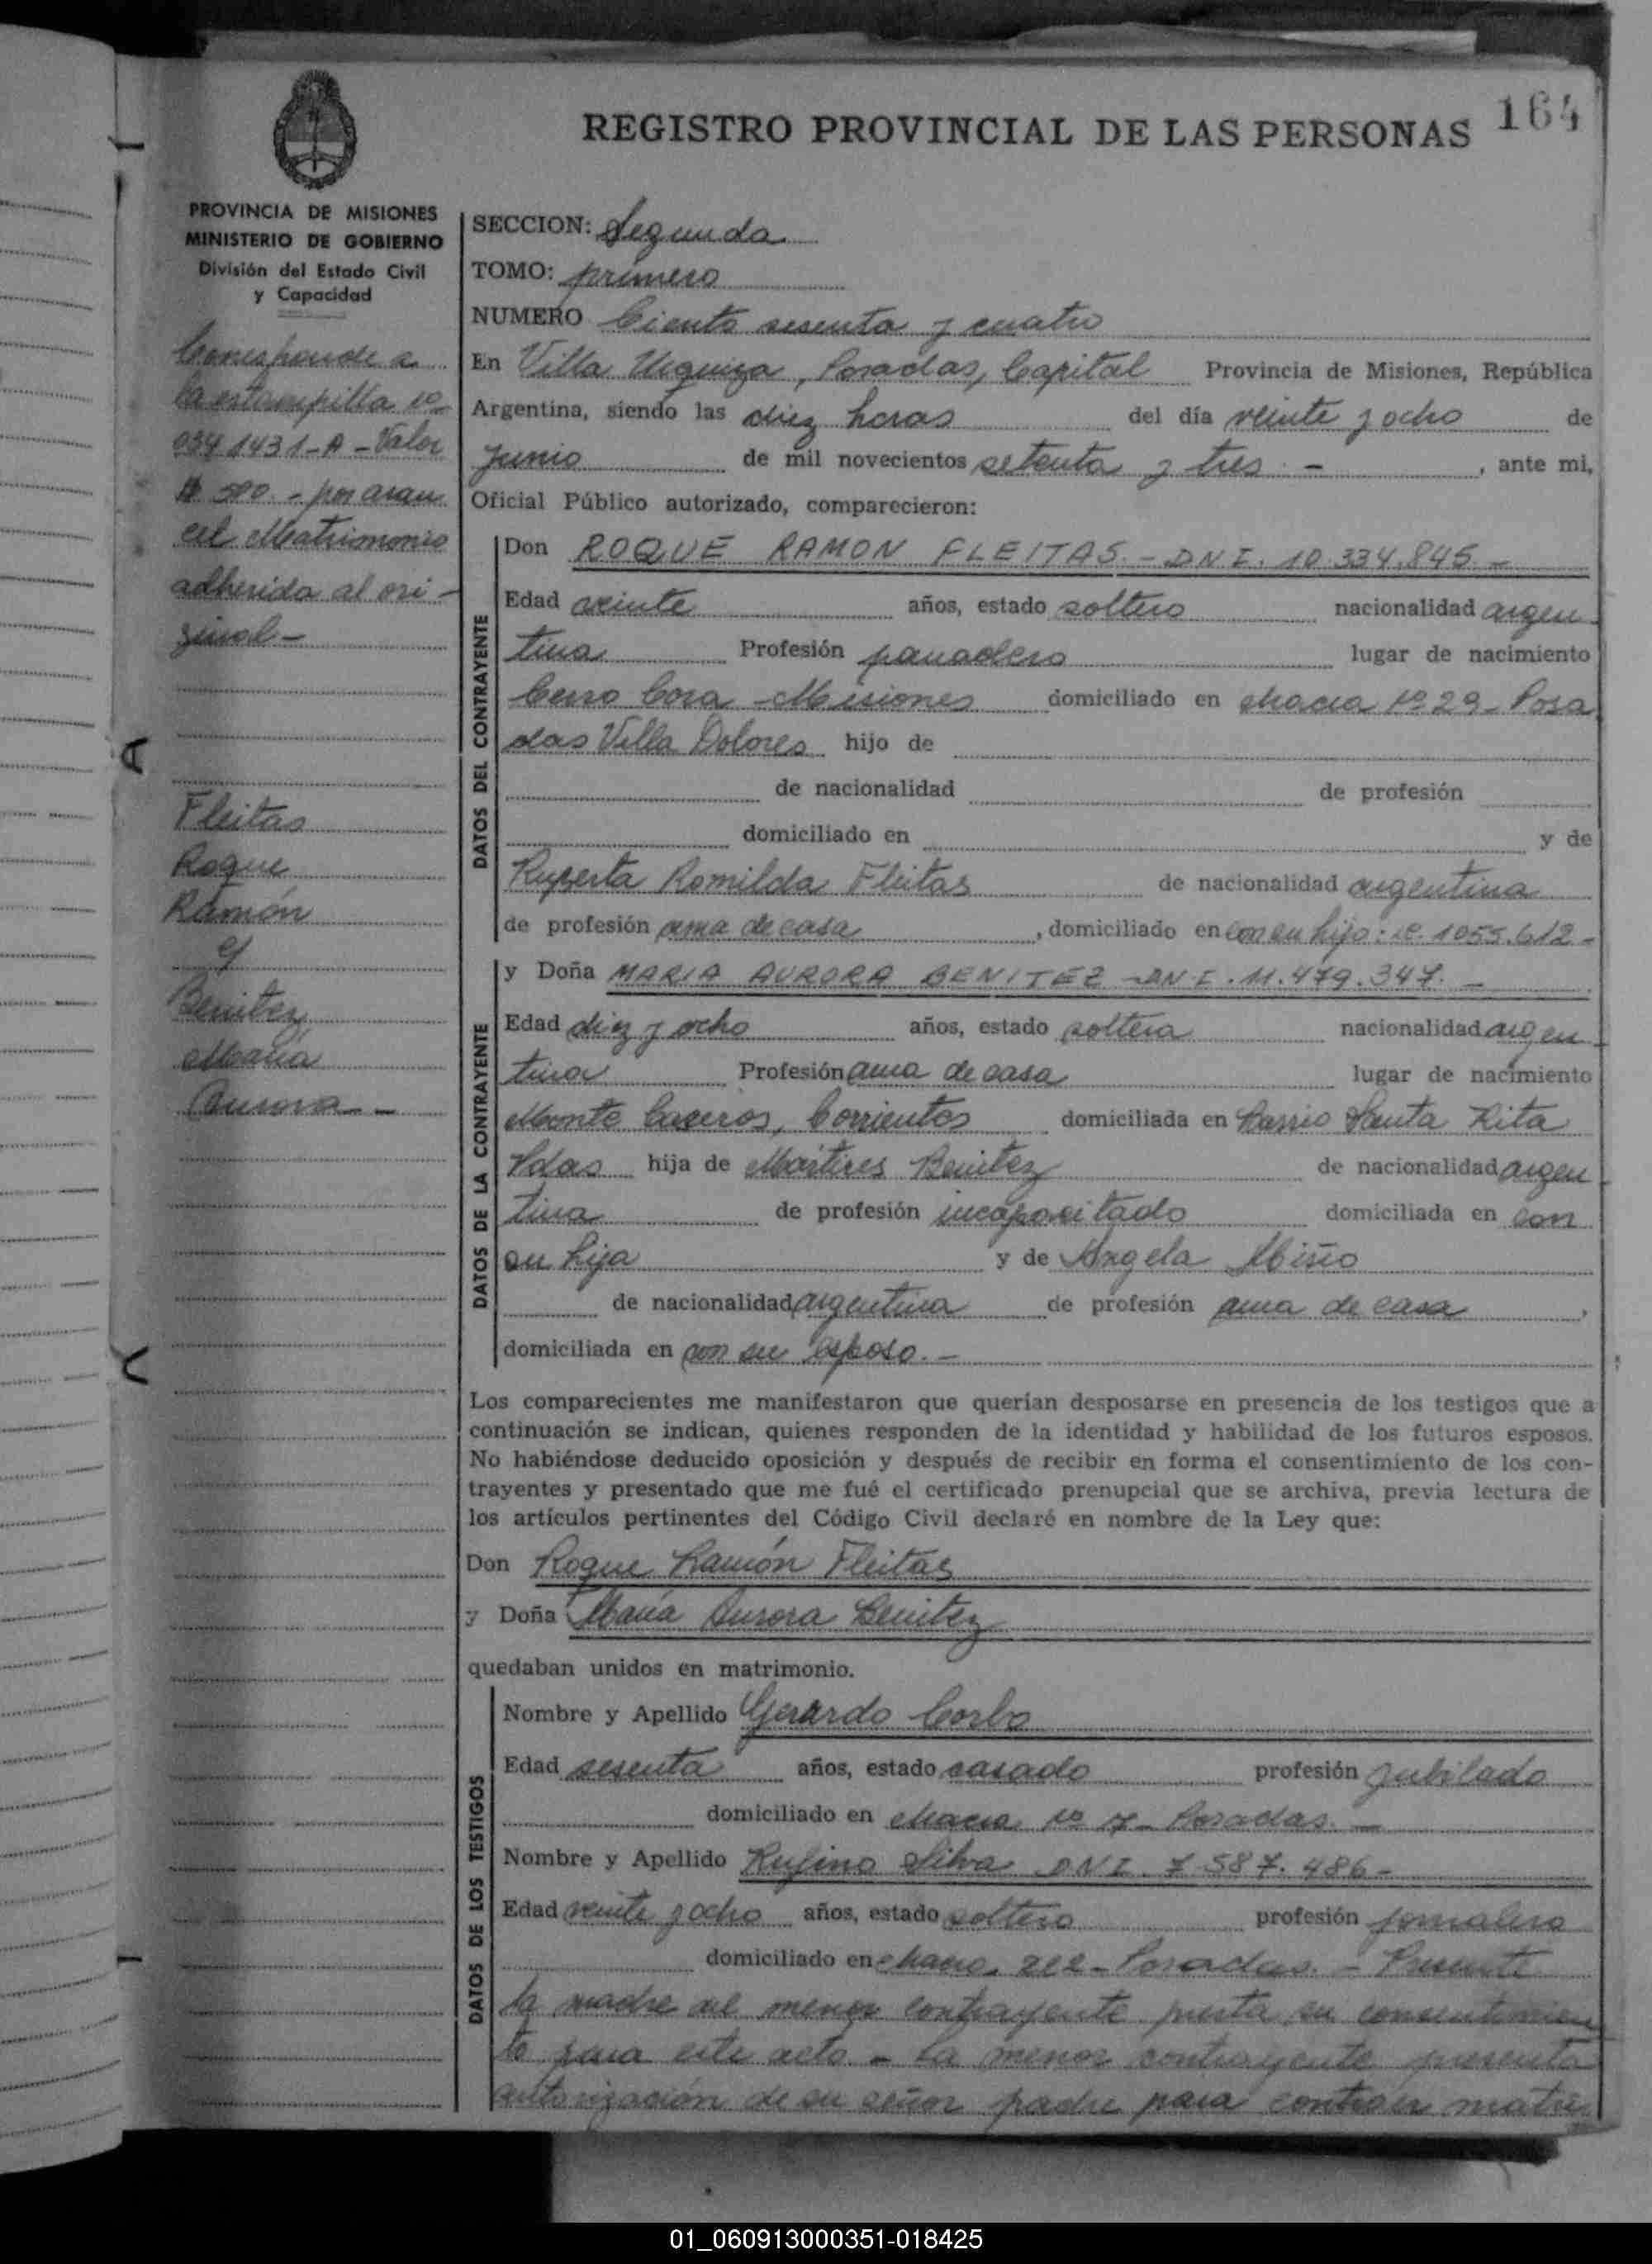 164
REGISTRO PROVINCIAL DE LAS PERSONAS
PROVINCIA DE MISIONES
MINISTERIO DE GOBIERNO
División del Estado Civil
y Capacidad
Corresponde a
la estampilla nº
0341431-A-Valor
$ 500 - por aran
cel Matrimonio
adherida al ori-
ginal-
Fleitas
Roque
Ramón
y
Benitez
María
Aurora -
SECCION: Segunda
TOMO: primero
NUMERO Ciento sesenta y cuatro
En Villa Urquiza, Posadas, Capital Provincia de Misiones, República
Argentina, siendo las diez horas del día veinte y ocho de
junio de mil novecientos setenta y tres - , ante mi,
Oficial Público autorizado, comparecieron:
DATOS DEL CONTRAYENTE
Don ROQUE RAMON FLEITAS - DNI. 10.334.845. -
Edad veinte años, estado soltero nacionalidad argen
tina Profesión panadero lugar de nacimiento
Cerro Cora - Misiones domiciliado en chacra Nº 29 - Posa
das Villa Dolores hijo de
de nacionalidad de profesión
domiciliado en y de
Ruperta Romilda Fleitas de nacionalidad argentina
de profesión ama de casa , domiciliado en con su hijo: 1055.612 -
DATOS DE LA CONTRAYENTE
y Doña MARIA AURORA BENITEZ - DNI. 11.479.347. -
Edad diez y ocho años, estado soltera nacionalidad argen
tina Profesión ama de casa lugar de nacimiento
Monte Caseros, Corrientes domiciliada en Barrio Santa Rita
Pdas hija de Mártires Benitez de nacionalidad argen
tina de profesión incapacitado domiciliada en con
su hija y de Angela Miño
de nacionalidad argentina de profesión ama de casa ,
domiciliada en con su esposo. -
Los comparecientes me manifestaron que querían desposarse en presencia de los testigos que a
continuación se indican, quienes responden de la identidad y habilidad de los futuros esposos.
No habiéndose deducido oposición y después de recibir en forma el consentimiento de los con-
trayentes y presentado que me fué el certificado prenupcial que se archiva, previa lectura de
los artículos pertinentes del Código Civil declaré en nombre de la Ley que:
Don Roque Ramón Fleitas
y Doña María Aurora Benitez
quedaban unidos en matrimonio.
DATOS DE LOS TESTIGOS
Nombre y Apellido Gerardo Corbo
Edad sesenta años, estado casado profesión jubilado
domiciliado en chacra Nº 7 - Posadas. -
Nombre y Apellido Rufino Silva DNI. 7.587.486 -
Edad veinte y ocho años, estado soltero profesión jornalero
domiciliado en chacra - Posadas. - Presente
la madre del menor contrayente presta su consentimien
to para este acto - La menor contrayente presenta
autorización de su señor padre para contraer matri
01_060913000351-018425